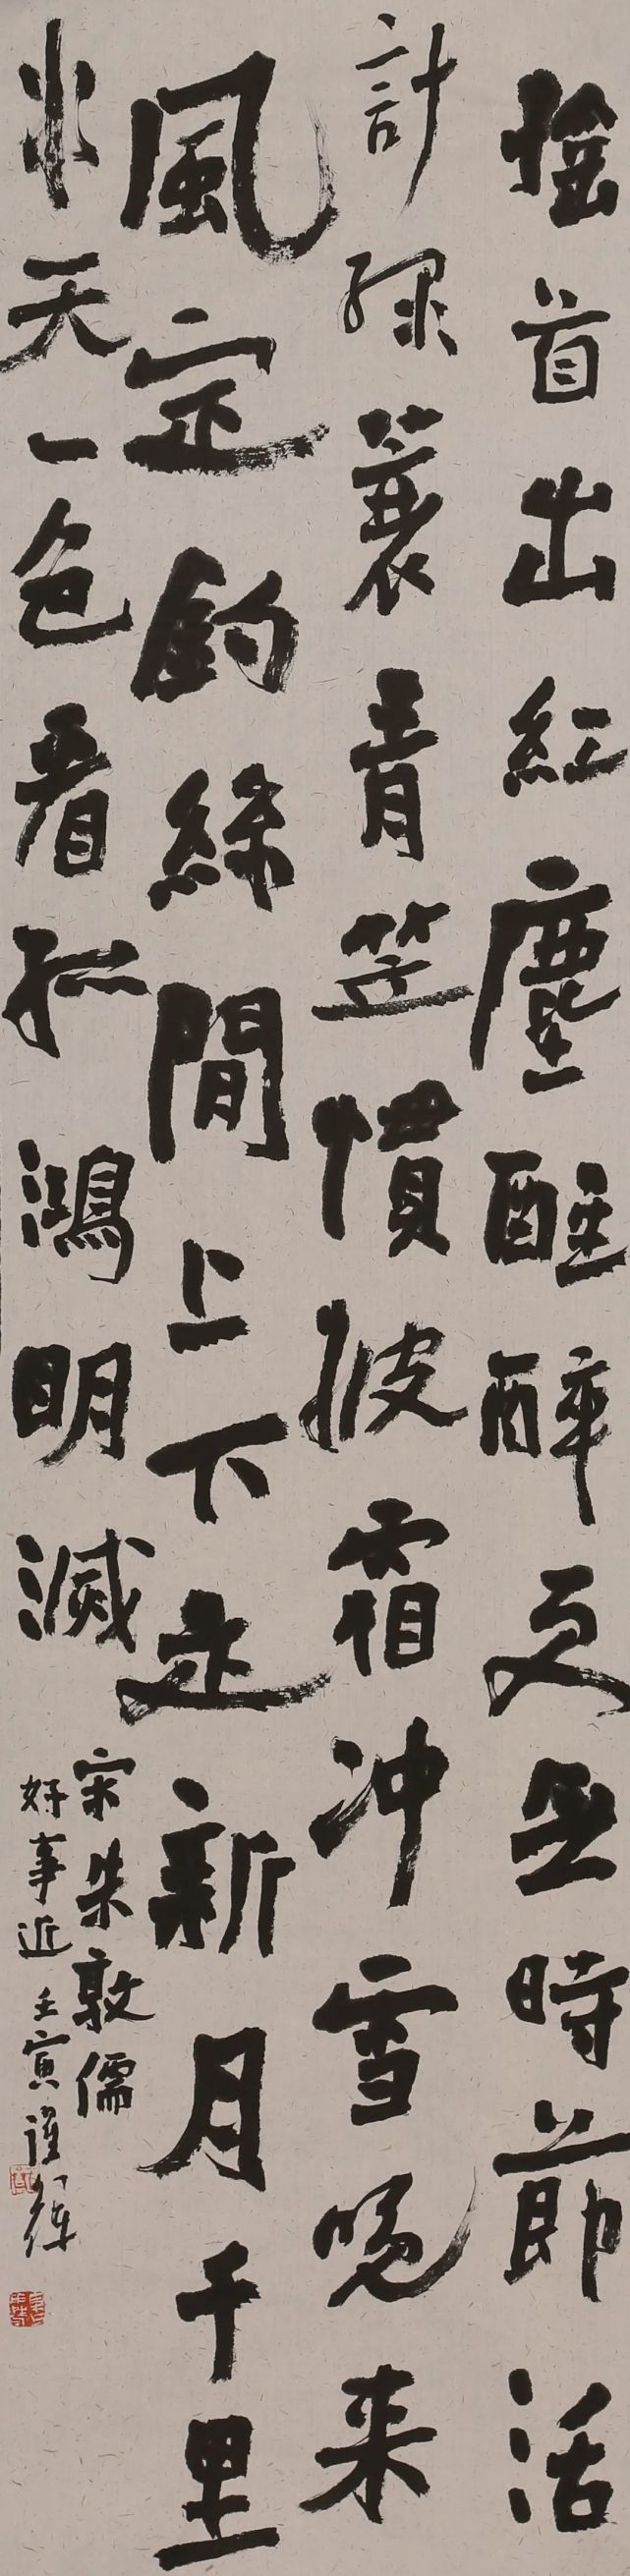 搖首出紅塵醒醉更無時節活
計綠蓑青笠慣披霜沖雪晚来
風定釣絲間上下是新月千里
水天一色看孤鴻明滅
宋朱敦儒
好事近 壬寅謹